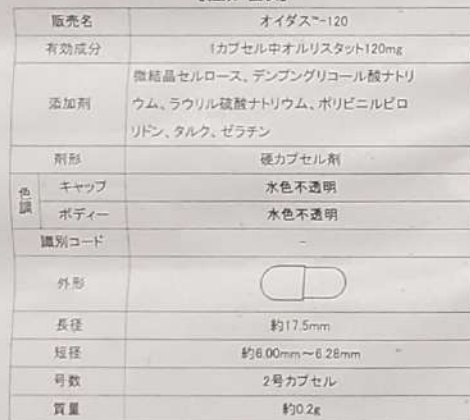 販売名 オイダス™-120
有効成分 1カプセル中オルリスタット120mg
添加剤 微結晶セルロース、デンプングリコール酸ナトリ
ウム、ラウリル硫酸ナトリウム、ポリビニルピロ
リドン、タルク、ゼラチン
剤形 硬カプセル剤
色調 キャップ 水色不透明
ボディー 水色不透明
識別コード -
外形
長径 約17.5mm
短径 約6.00mm~6.28mm
号数 2号カプセル
質量 約0.2g